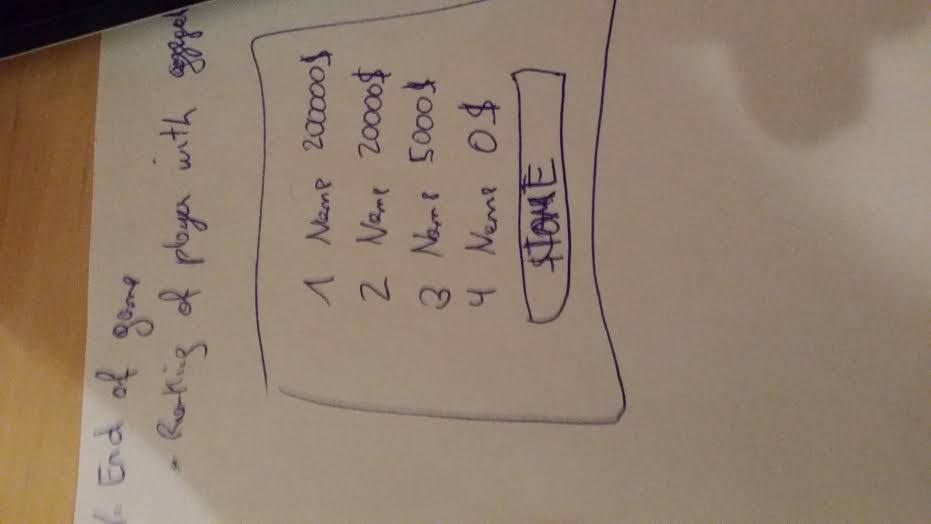 End of game
- Ranking of player with
1 Name 200000$
2 Name 20000$
3 Name 5000$
4 Name 0$
HOME